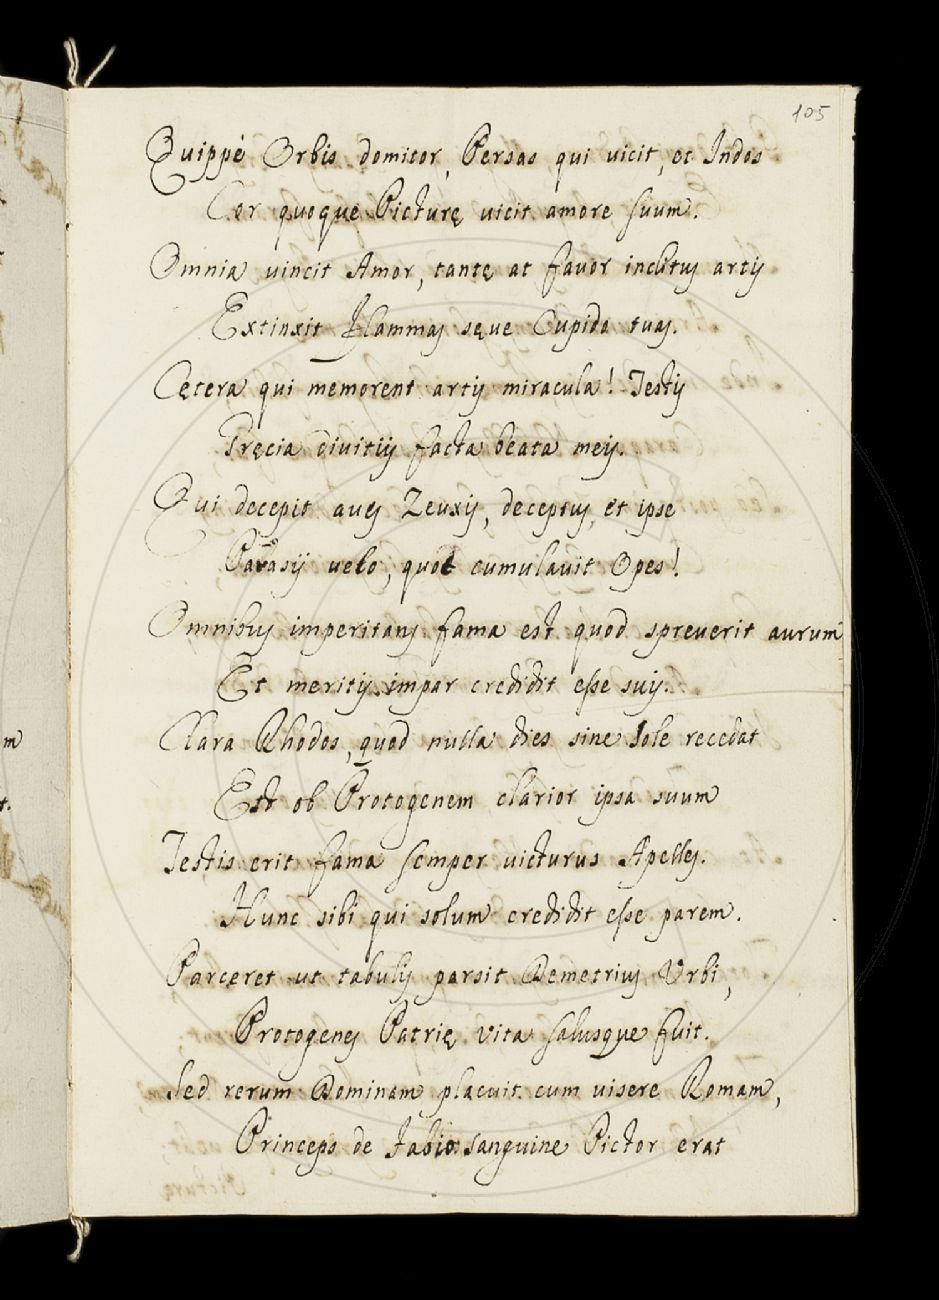 105
Quippè Orbis domitor, Persas qui vicit, et Indos
Cor quoque Picturę vicit amore suum.
Omnia vincit Amor, tantę at favor inclitus artis
Extinxit flammas sęve Cupido tuas.
Cętera qui memorent artis miracula! Testis
Gręcia divitiis facta beata meis.
Qui decepit aves Zeuxis, deceptus, et ipse
Parasij velo, quot cumulavit Opes!
Omnibus imperitans fama est quod spreverit aurum
Et meritis impar credidit esse suis.
Clara Rhodos, quod nulla dies sine sole recedat
Est ob Protogenem clarior ipsa suum
Testis erit fama semper victurus Apelles.
Hunc sibi qui solum credidit esse parem.
Parceret ut tabulis parsit Demetrius Urbi,
Protogenes Patrię vita salusque fuit.
Sed rerum Dominam placuit cum visere Romam,
Princeps de Fabio sanguine Pictor erat
m
t.